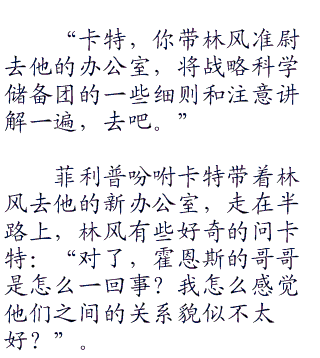 “卡特，你带林风准尉
去他的办公室，将战略科学
储备团的一些细则和注意讲
解一遍，去吧。”
菲利普吩咐卡特带着林
风去他的新办公室，走在半
路上，林风有些好奇的问卡
特：“对了，霍恩斯的哥哥
是怎么一回事？我怎么感觉
他们之间的关系貌似不太
好？”。